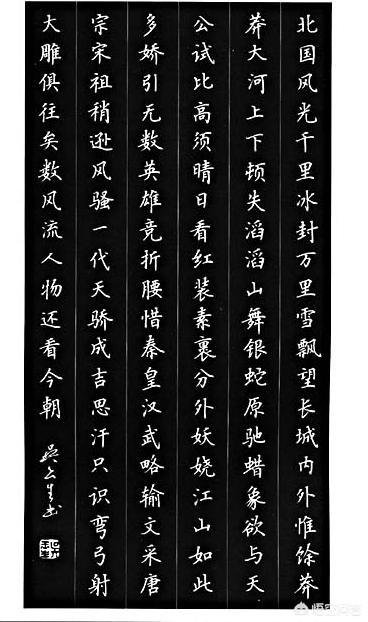 北国风光千里冰封万里雪飘望长城内外惟馀莽
莽大河上下顿失滔滔山舞银蛇原驰蜡象欲与天
公试比高须晴日看红装素裹分外妖娆江山如此
多娇引无数英雄竞折腰惜秦皇汉武略输文采唐
宗宋祖稍逊风骚一代天骄成吉思汗只识弯弓射
大雕俱往矣数风流人物还看今朝
吴玉生书
悟空问答